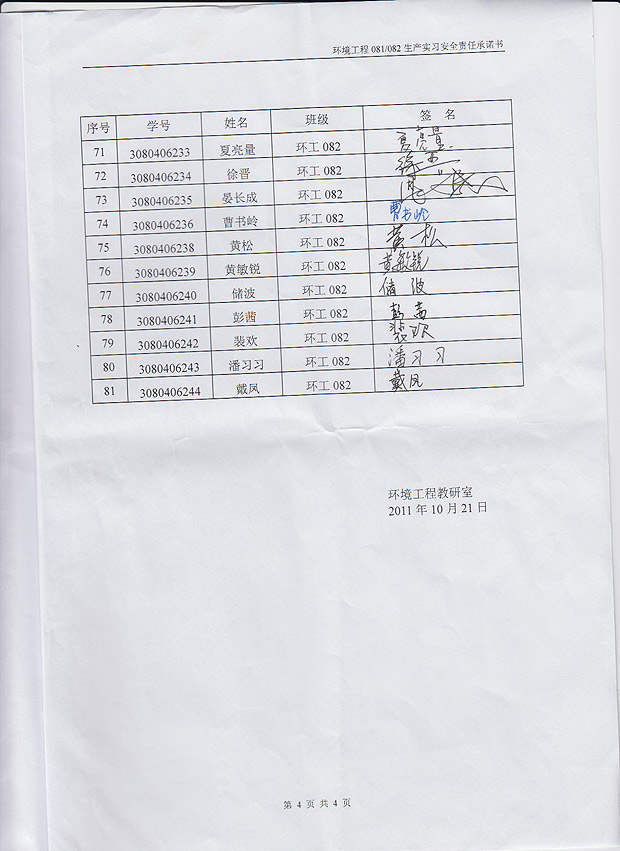 环境工程 081/082 生产实习安全责任承诺书
序号 学号 姓名 班级 签 名
71 3080406233 夏亮量 环工 082 夏亮量
72 3080406234 徐晋 环工 082 徐晋
73 3080406235 晏长成 环工 082
74 3080406236 曹书岭 环工 082 曹书岭
75 3080406238 黄松 环工 082 黄松
76 3080406239 黄敏锐 环工 082 黄敏锐
77 3080406240 储波 环工 082 储波
78 3080406241 彭茜 环工 082 彭茜
79 3080406242 裴欢 环工 082 裴欢
80 3080406243 潘习习 环工 082 潘习习
81 3080406244 戴凤 环工 082 戴凤
环境工程教研室
2011 年 10 月 21 日
第 4 页 共 4 页